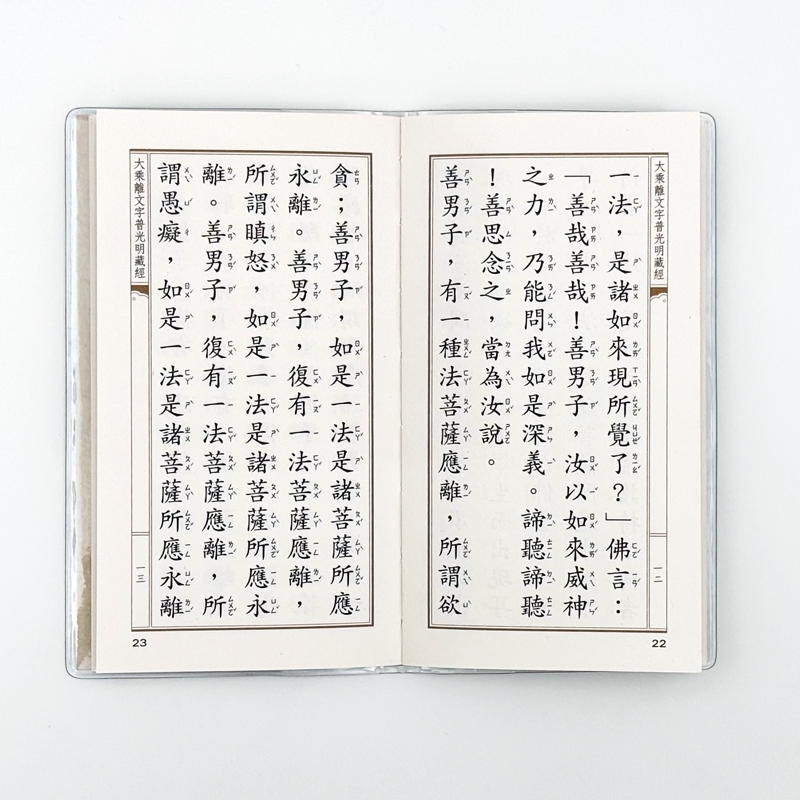 大乘離文字普光明藏經
一二
一法，是諸如來現所覺了？」佛言：
「善哉善哉！善男子，汝以如來威神
之力，乃能問我如是深義。諦聽諦聽
！善思念之，當為汝說。
善男子，有一種法菩薩應離，所謂欲
22
貪；善男子，如是一法是諸菩薩所應
永離。善男子，復有一法菩薩應離，
所謂瞋怒，如是一法是諸菩薩所應永
離。善男子，復有一法菩薩應離，所
謂愚癡，如是一法是諸菩薩所應永離
大乘離文字普光明藏經
一三
23